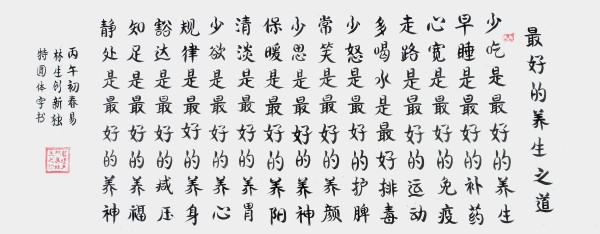 最好的养生之道
少吃是最好的养生
早睡是最好的补药
心宽是最好的免疫
走路是最好的运动
多喝水是最好排毒
少怒是最好的护脾
常笑是最好的养颜
少思是最好的养神
保暖是最好的养阳
清淡是最好的养胃
少欲是最好的养心
规律是最好的养身
豁达是最好的减压
知足是最好的养福
静处是最好的养神
丙午初春易
林生创新独
特圆体字书